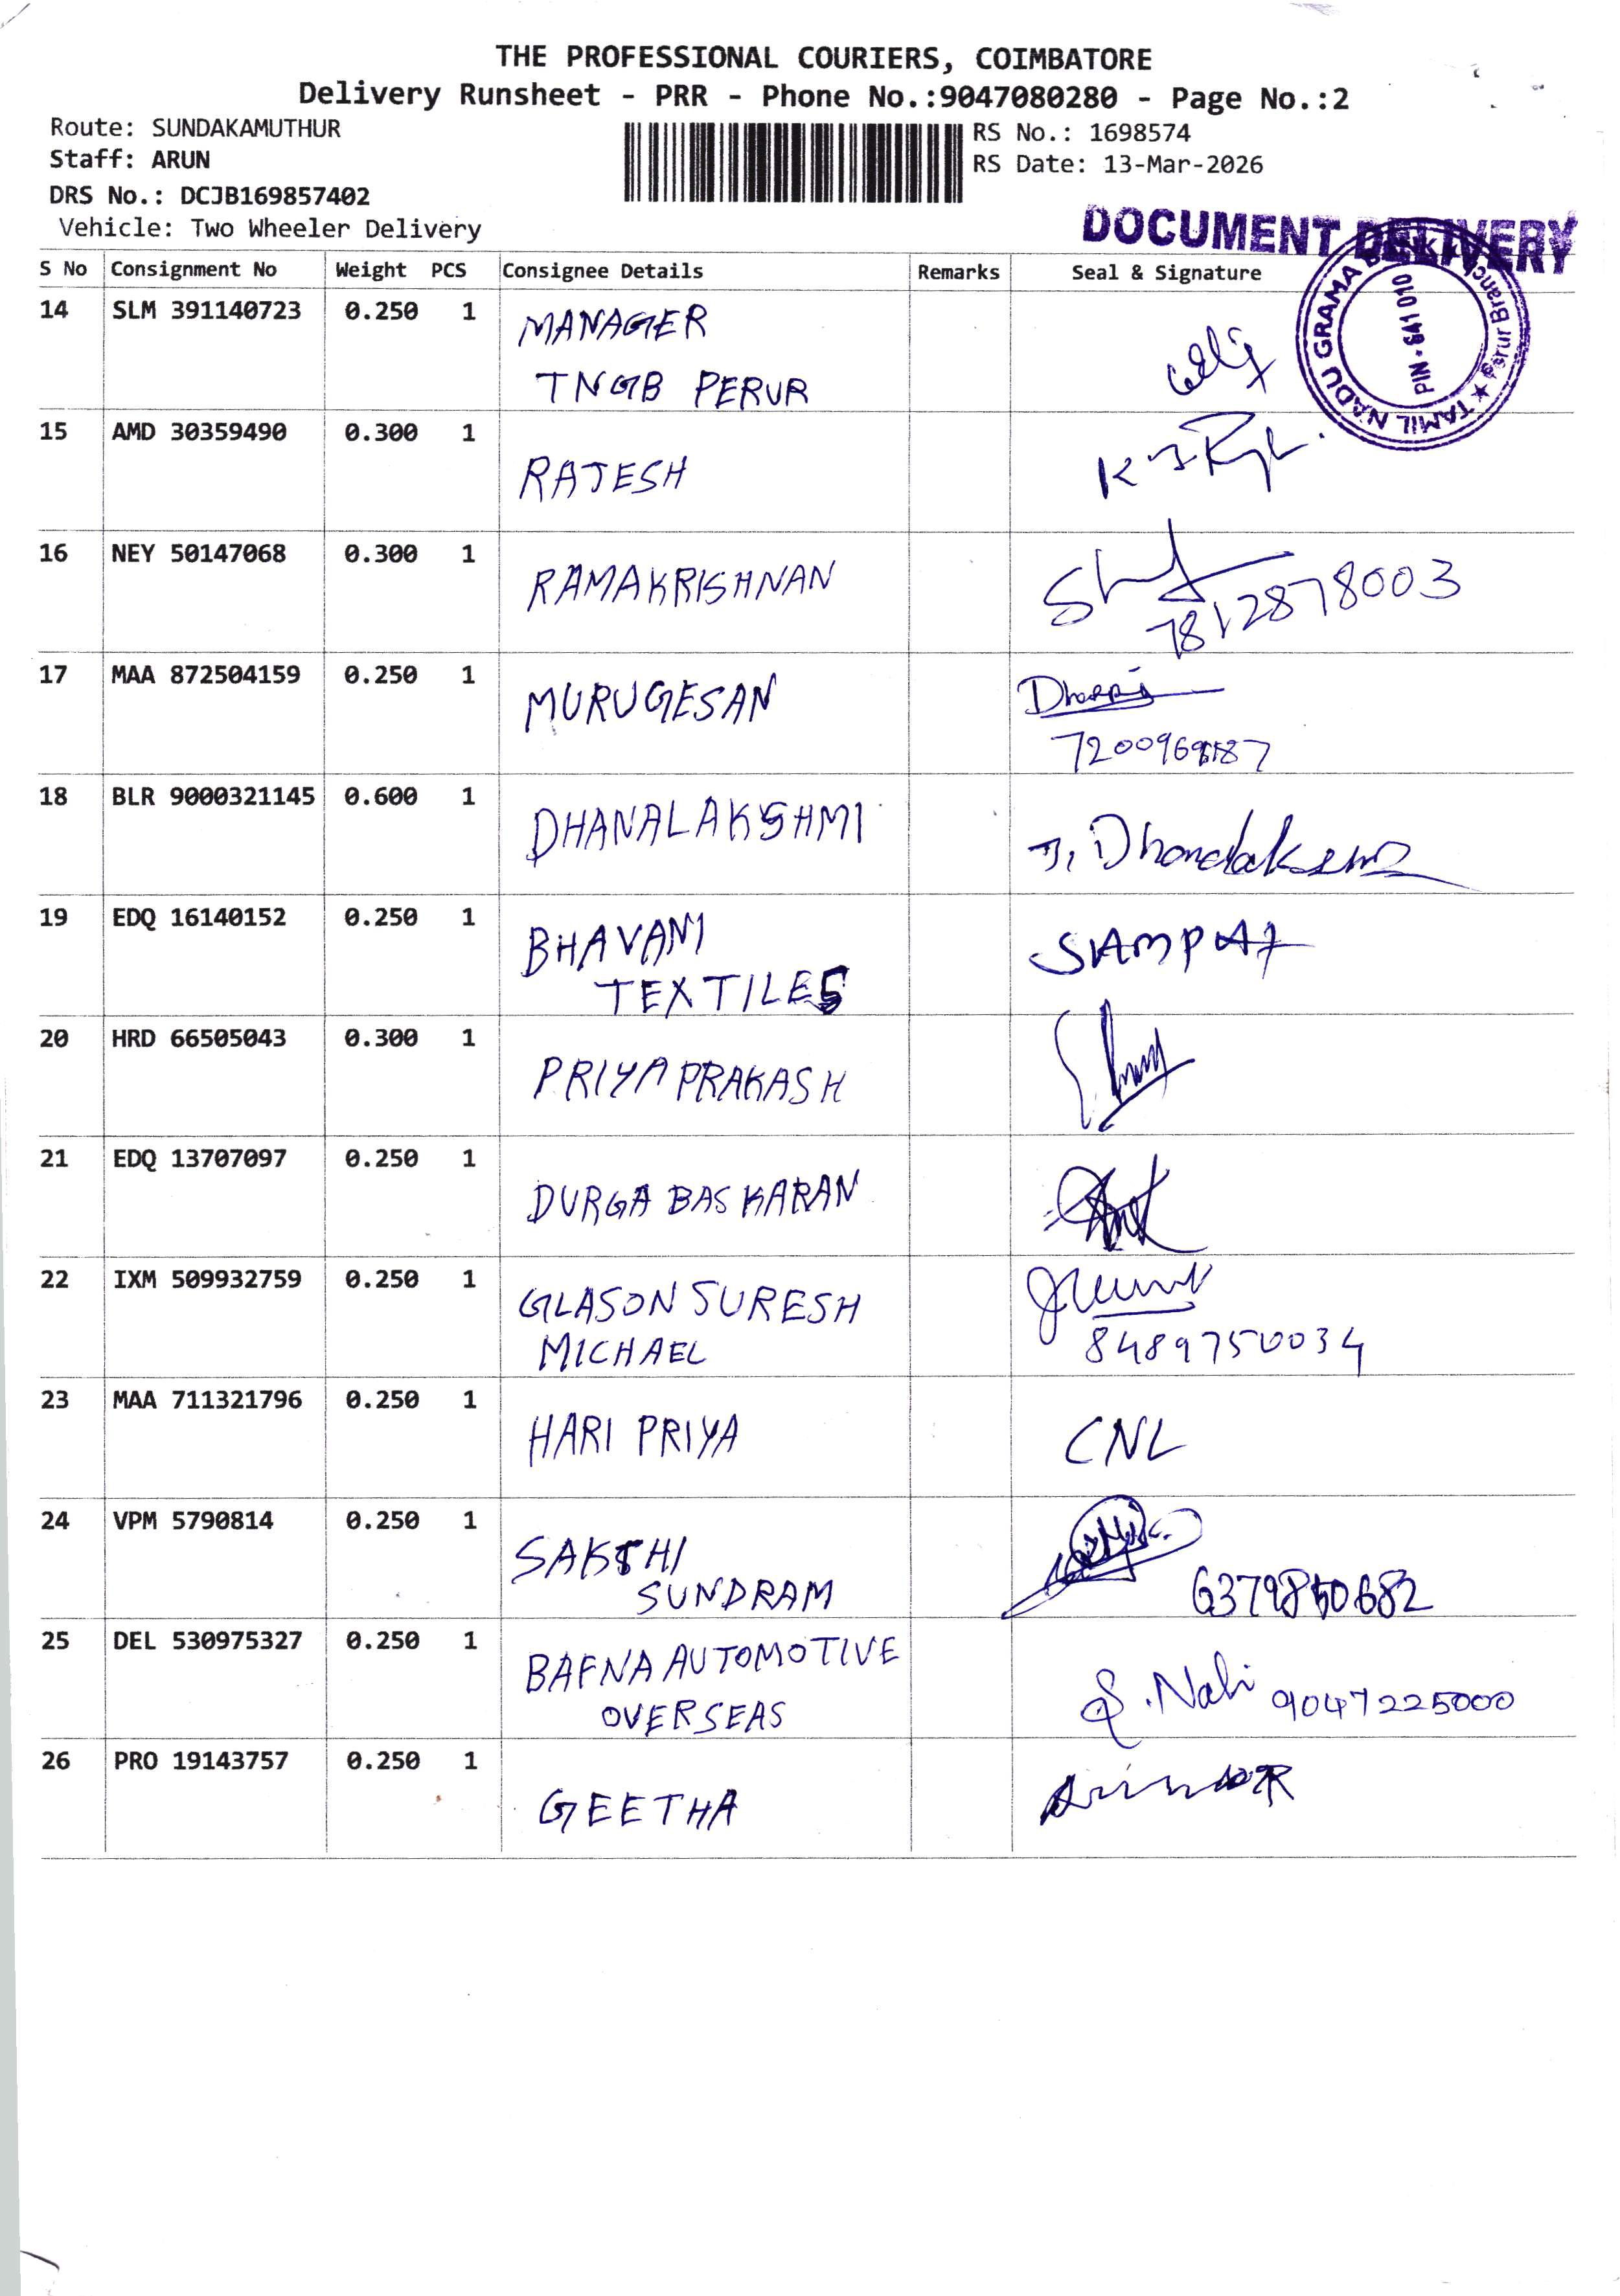 THE PROFESSIONAL COURIERS, COIMBATORE
Delivery Runsheet - PRR - Phone No.:9047080280 - Page No.:2
Route: SUNDAKAMUTHUR
Staff: ARUN
DRS No.: DCJB169857402
Vehicle: Two Wheeler Delivery
RS No.: 1698574
RS Date: 13-Mar-2026
DOCUMENT DELIVERY
TAMIL NADU GRAMA BANK
Perur Branch
PIN - 641 010
S No Consignment No Weight PCS Consignee Details Remarks Seal & Signature
14 SLM 391140723 0.250 1 MANAGER
TNGB PERUR
15 AMD 30359490 0.300 1 RAJESH
16 NEY 50147068 0.300 1 RAMAKRISHNAN
7812878003
17 MAA 872504159 0.250 1 MURUGESAN
18 BLR 9000321145 0.600 1 DHANALAKSHMI
19 EDQ 16140152 0.250 1 BHAVANI
TEXTILES
20 HRD 66505043 0.300 1 PRIYA PRAKASH
21 EDQ 13707097 0.250 1 DURGA BASKARAN
22 IXM 509932759 0.250 1 GLASON SURESH
MICHAEL 8489750034
23 MAA 711321796 0.250 1 HARI PRIYA CNL
24 VPM 5790814 0.250 1 SAKTHI
SUNDRAM
25 DEL 530975327 0.250 1 BAFNA AUTOMOTIVE
OVERSEAS 9047225000
26 PRO 19143757 0.250 1 GEETHA